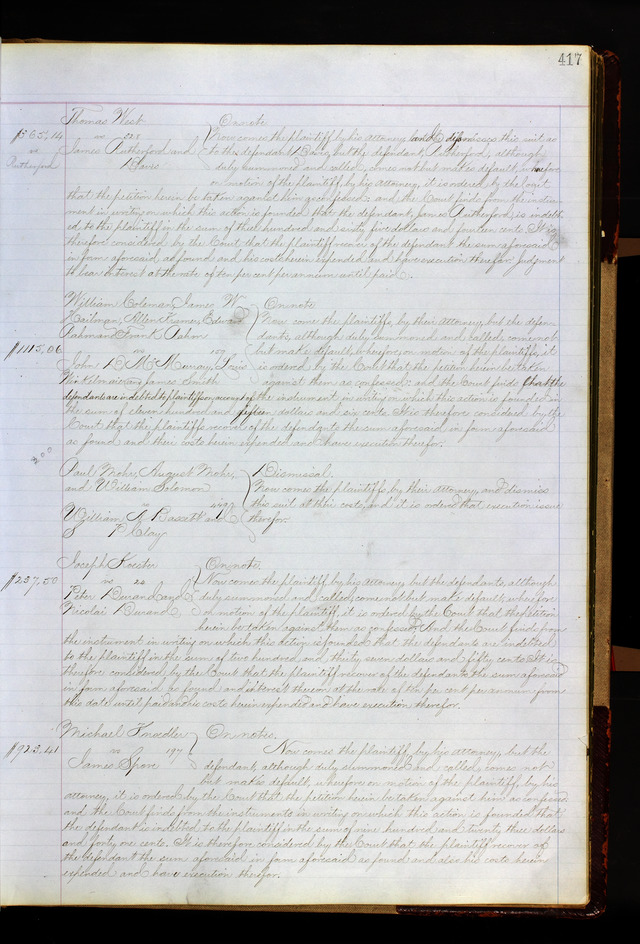 417
Thomas West On note
$365.14 vs 023 Now comes the plaintiff by his attorney and dismisses this suit as
vs James Rutherford and to the defendant, Davis, but the defendant, Rutherford, although
Rutherford Davis duly summoned and called, comes not but makes default, wherefore
on motion of the plaintiff, by his attorney, it is ordered by the Court
that the petition herein be taken against him as confessed: and the Court finds from the instru-
ment in writing on which this action is founded that the defendant, James Rutherford, is indebt-
ed to the plaintiff in the sum of three hundred and sixty five dollars and fourteen cents. It is
therefore considered by the Court that the plaintiff recover of the defendant the sum aforesaid
in form aforesaid, as found and his costs herein expended and have execution therefor; judgment
to bear interest at the rate of ten per cent per annum until paid.
William Coleman, James W. On note
Heilman, Allen Kinney, Edward Now come the plaintiffs, by their attorney, but the defen-
Dahman Frank Dahm dants, although duly summoned and called, come not
$1115.06 vs 109 but make default, wherefore on motion of the plaintiffs, it
John D. McMurray, Louis is ordered by the Court that the petition herein be taken
James Smith against them as confessed: and the Court finds that the
defendants are indebted to plaintiffs on account of the instrument in writing on which this action is founded in
the sum of eleven hundred and fifteen dollars and six cents. It is therefore considered by the
Court that the plaintiffs recover of the defendants the sum aforesaid, in form aforesaid
as found and their costs herein expended and have execution therefor.
300
Paul Mohr, August Mohr, Dismissal.
and William Solomon Now come the plaintiffs, by their attorney, and dismiss
vs this suit at their costs, and it is ordered that execution issue
William A Bassett and therefor.
S P Clay
Joseph Koester On note.
$237.50 vs 24 Now comes the plaintiff by his attorney, but the defendants, although
Peter Durand and duly summoned and called, come not but make default, wherefore
Nicolai Durand on motion of the plaintiff it is ordered by the Court that the petition
herein be taken against them as confessed. And the Court finds from
the instrument in writing on which this action is founded that the defendants are indebted
to the plaintiff in the sum of two hundred and thirty seven dollars and fifty cents. It is
therefore considered by the Court that the plaintiff recover of the defendants the sum aforesaid
in form aforesaid as found and interest thereon at the rate of ten per cent per annum from
this date until paid and his costs herein expended and have execution therefor.
Michael Knoedler On notes.
$923.41 vs 197 Now comes the plaintiff, by his attorney, but the
James Spore defendant, although duly summoned and called, comes not
but makes default, wherefore on motion of the plaintiff, by his
attorney, it is ordered by the Court that the petition herein be taken against him as confessed
and the Court finds from the instruments in writing on which this action is founded that
the defendant is indebted to the plaintiff in the sum of nine hundred and twenty three dollars
and forty one cents. It is therefore considered by the Court that the plaintiff recover of
the defendant the sum aforesaid in form aforesaid as found and also his costs herein
expended and have execution therefor.